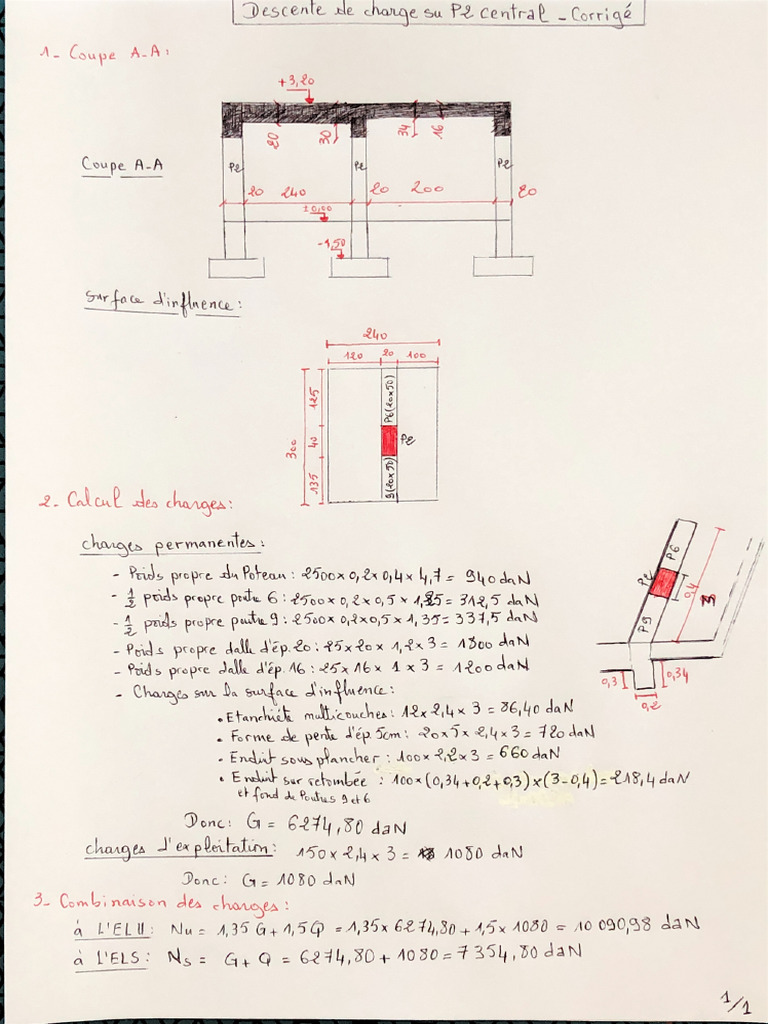 Descente de charge su P2 central - Corrigé
1- Coupe A-A:
+3,20
20
30
34
16
Coupe A-A
P2
P2
P2
20 240 20 200 20
±0,00
-1,50
Surface d'influence:
240
120 20 100
300
125
40
135
P6(20x50)
P2
9(20x50)
2- Calcul des charges:
charges permanentes:
- Poids propre du Poteau: 2500x0,2x0,4x4,7= 940 daN
- 1/2 poids propre poutre 6: 2500x0,2x0,5x1,25=312,5 daN
- 1/2 poids propre poutre 9: 2500x0,2x0,5x1,35=337,5 daN
- Poids propre dalle d'ép.20: 25x20x1,2x3=1800 daN
- Poids propre dalle d'ép.16: 25x16x1x3=1200daN
- Charges sur la surface d'influence:
• Etanchiété multicouches: 12x2,4x3=86,40 daN
• Forme de pente d'ép.5cm: 20x5x2,4x3=720 daN
• Enduit sous plancher: 100x2,2x3=660 daN
• Enduit sur retombée: 100x(0,34+0,2+0,3)x(3-0,4)=218,4 daN
et fond de Poutres 9 et 6
P6
P2
P9
0,4
3
0,3
0,34
0,2
Donc: G = 6274,80 daN
charges d'exploitation: 150x2,4x3= 1080 daN
Donc: G=1080 daN
3- Combinaison des charges:
à L'ELU: Nu= 1,35 G+1,5Q = 1,35x6274,80+1,5x1080=10 090,98 daN
à L'ELS: Ns= G+Q = 6274,80+1080=7354,80 daN
1/1